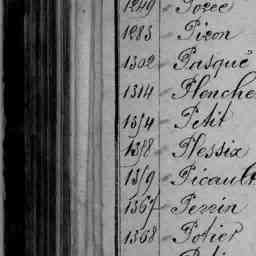 1249 Porée
1283 Piron
1302 Pasqué
1314 Plenche
1314 Petit
1318 Plessix
1319 Picault
1367 Perrin
1368 Potier